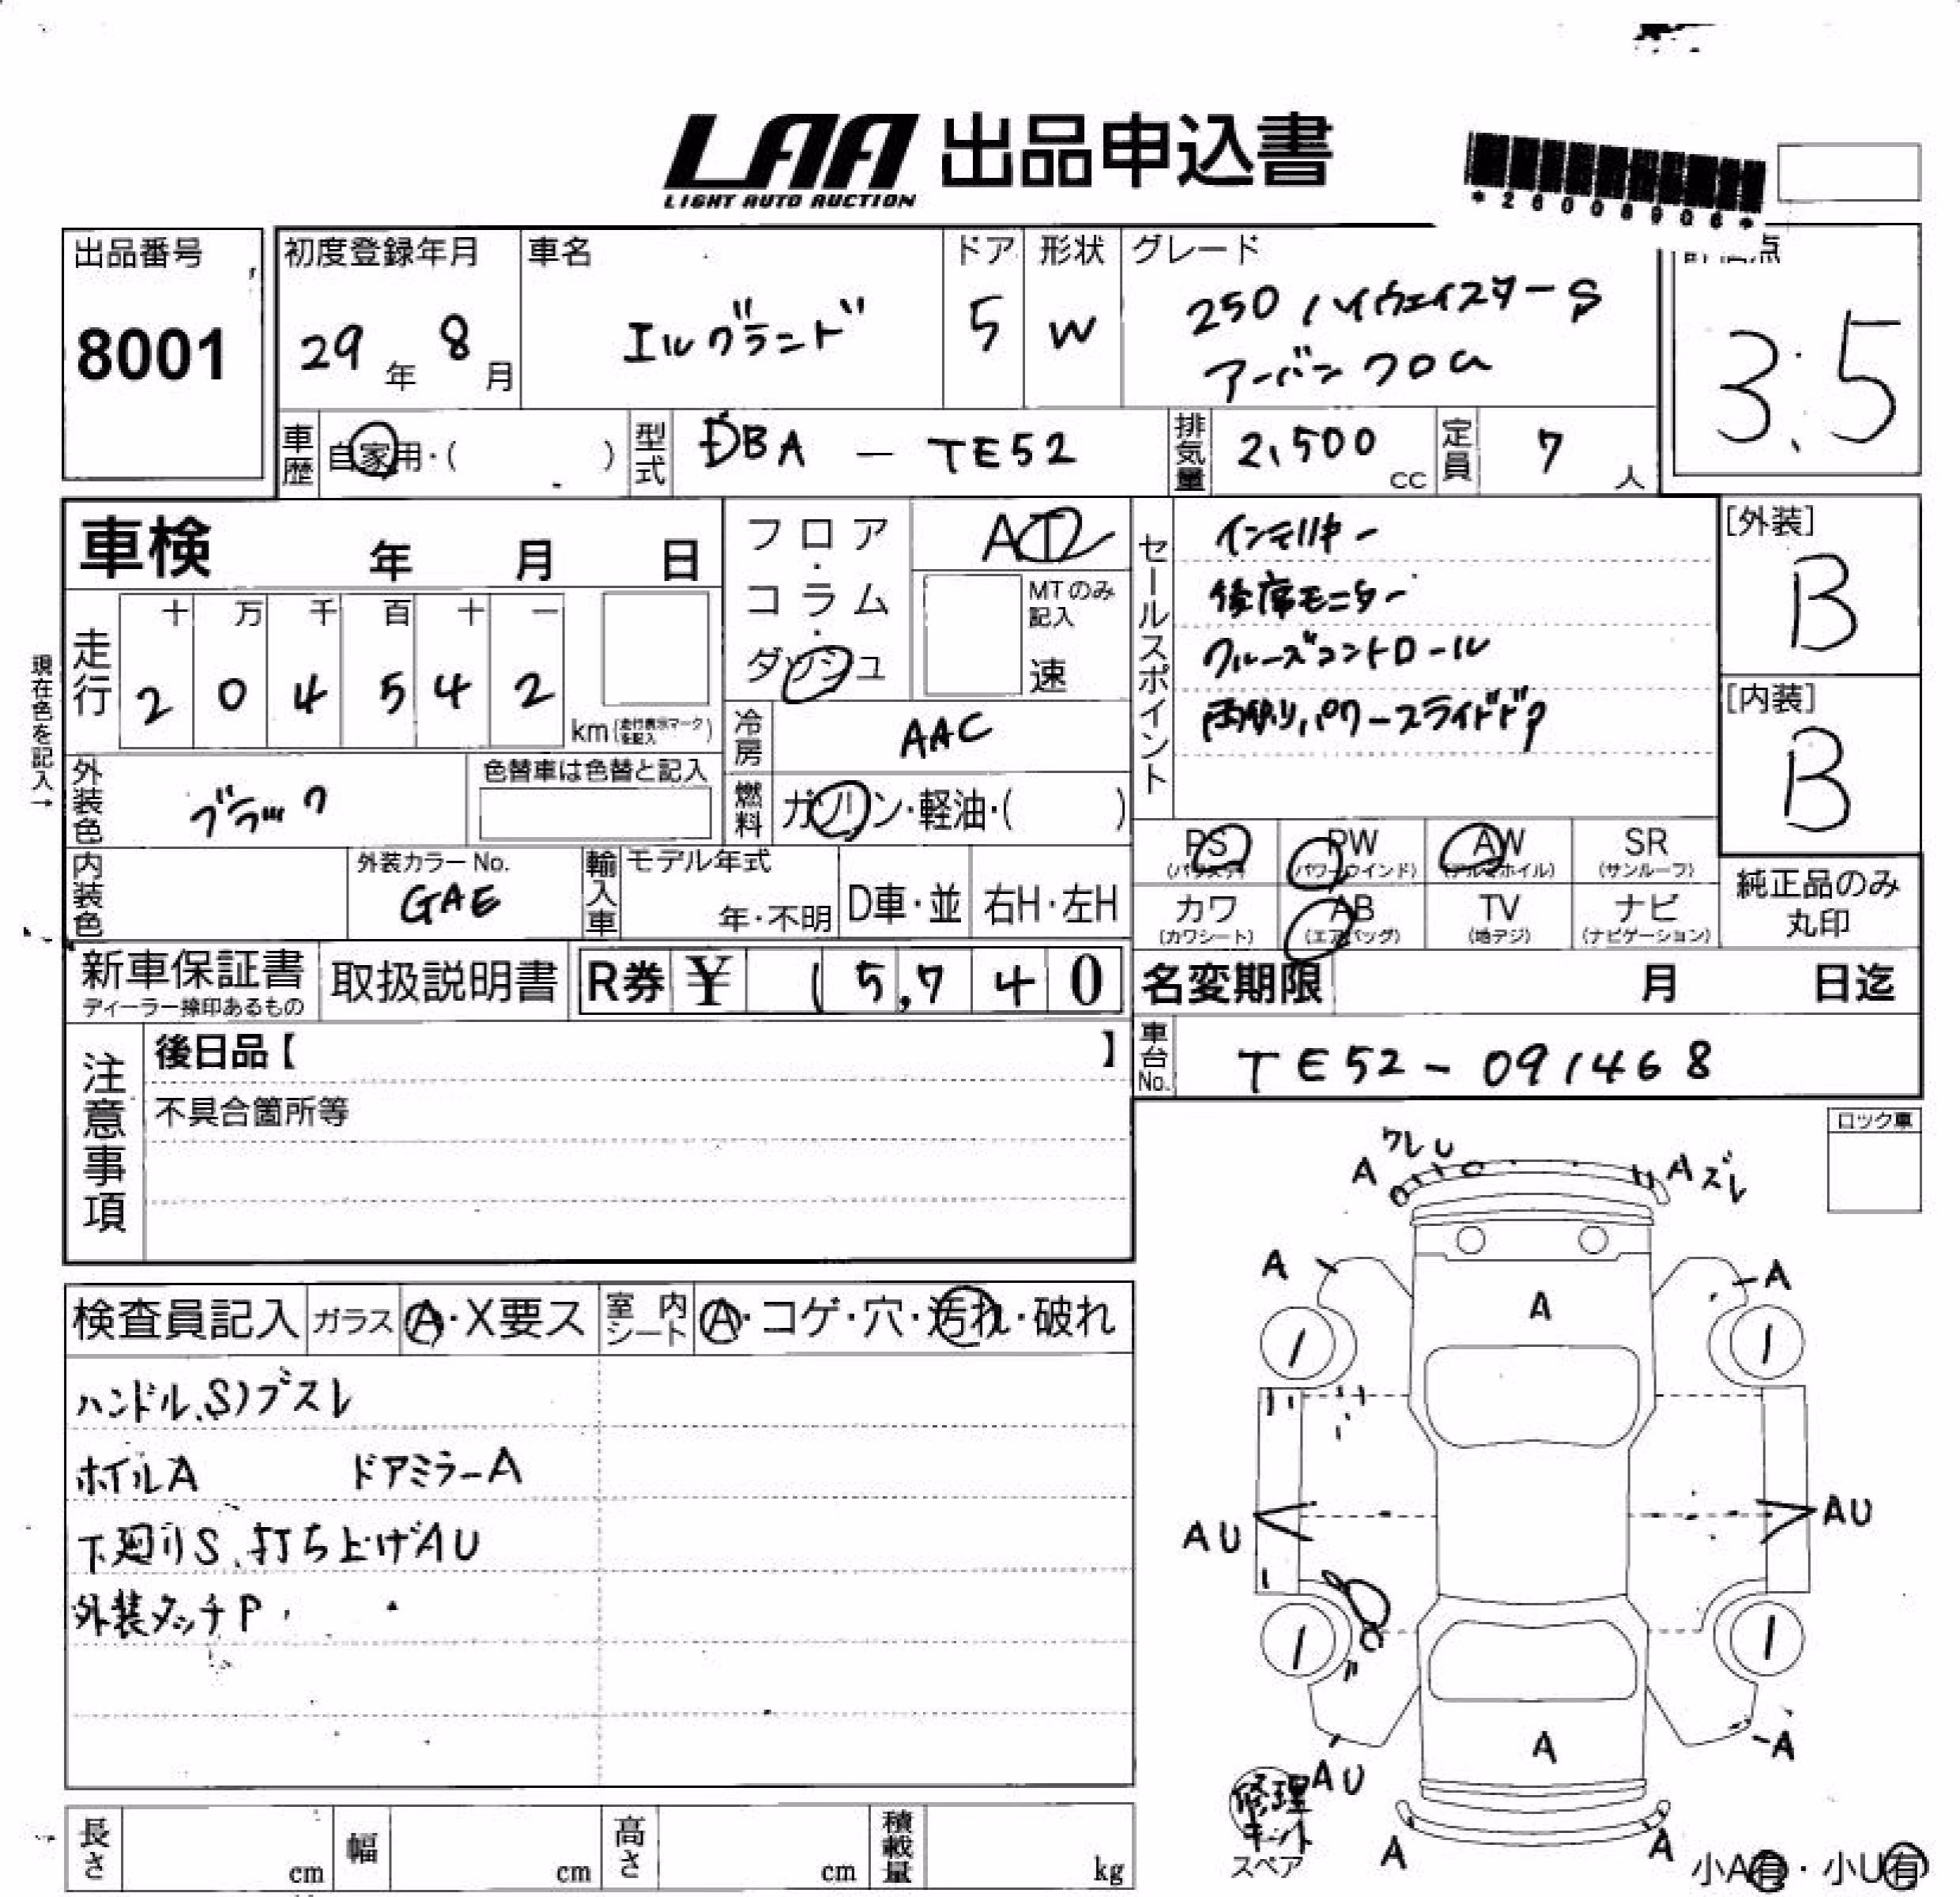 LAA 出品申込書
LIGHT AUTO AUCTION
*26008906*
出品番号
8001
初度登録年月
29年 8月
車名
エルグランド
ドア
5
形状
W
グレード
250 ハイウェイスターS
アーバンクロム
点
3.5
車歴
自家用・( )
型式
DBA - TE52
排気量
2,500 cc
定員
7 人
車検 年 月 日
現在色を記入→
走行
十 万 千 百 十 一
2 0 4 5 4 2
km(走行表示マークを記入)
フロア・コラム・ダッシュ
AT
MTのみ記入
速
冷房
AAC
燃料
ガソリン・軽油・( )
セールスポイント
インテリキー
後席モニター
クルーズコントロール
両側パワースライドドア
[外装]
B
[内装]
B
外装色
ブラック
色替車は色替と記入
内装色
外装カラーNo.
GAE
輸入車
モデル年式
年・不明
D車・並
右H・左H
PS PW AW SR
(パワステ) (パワーウインド) (アルミホイル) (サンルーフ)
カワ AB TV ナビ
(カワシート) (エアバッグ) (地デジ) (ナビゲーション)
純正品のみ
丸印
新車保証書
ディーラー捺印あるもの
取扱説明書
R券 ¥ 15,740
名変期限 月 日迄
車台No.
TE52-091468
注意事項
後日品【 】
不具合箇所等
ロック車
検査員記入
ガラス A・X要ス
室内シート A・コゲ・穴・汚れ・破れ
ハンドル、S)ブスレ
ホイルA ドアミラーA
下廻りS、打ち上げAU
外装タッチP
A ワレ U A ズレ
A A A
AU AU
AU A A
修理キット
スペア
A A
小A有・小U有
長さ cm
幅 cm
高さ cm
積載量 kg